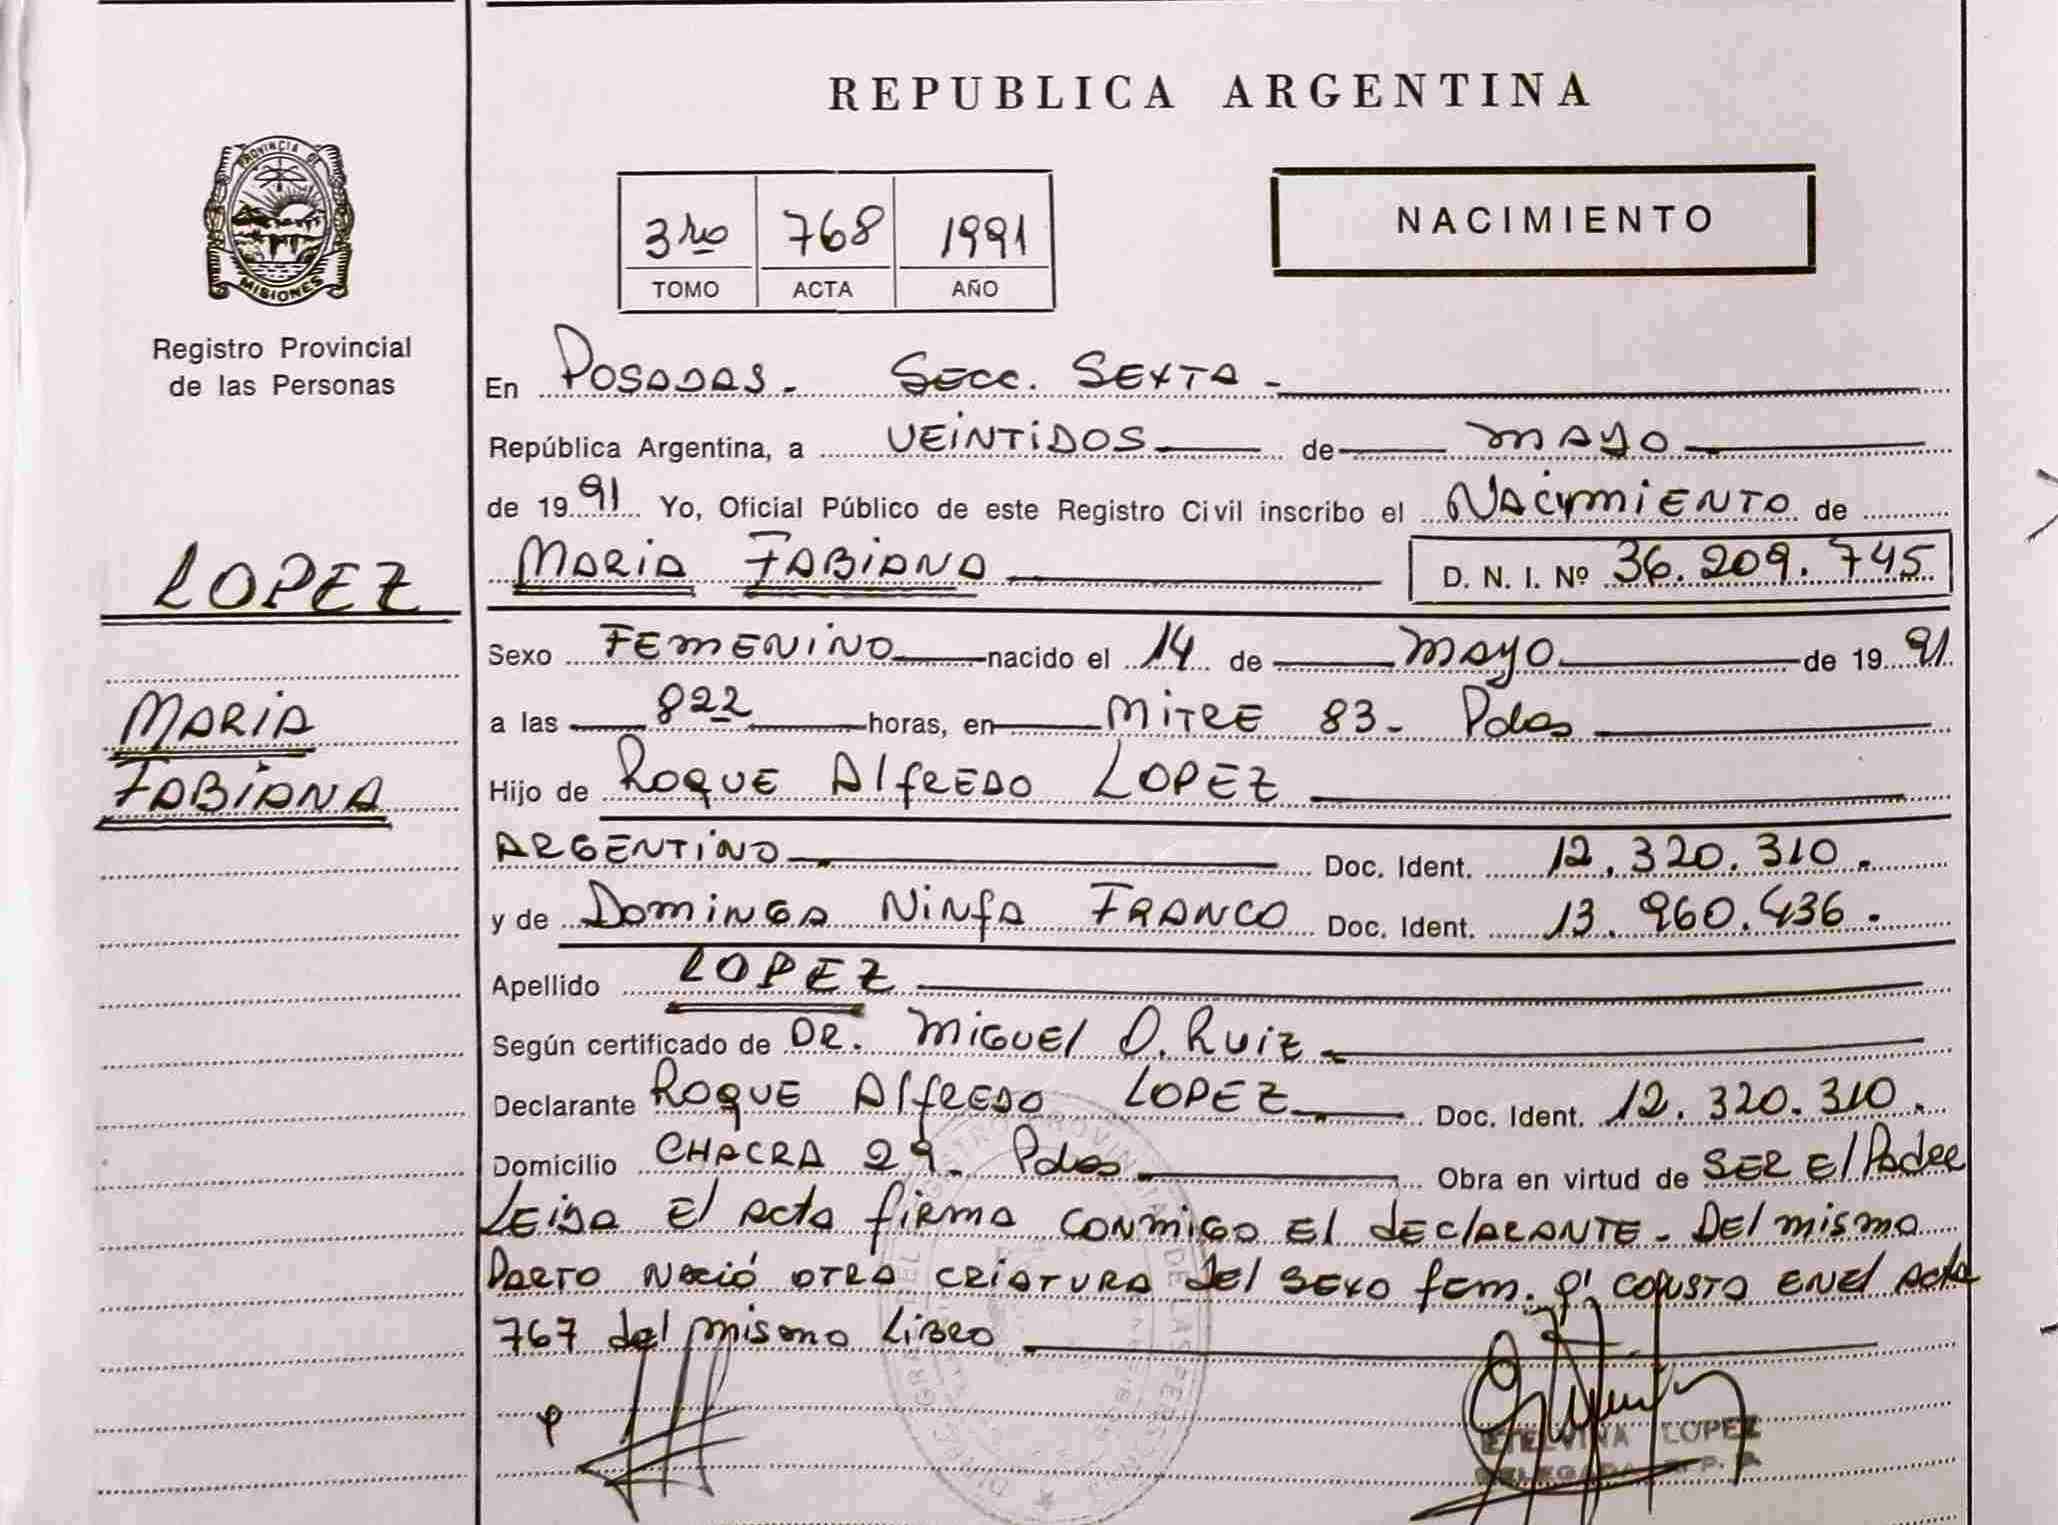 REPUBLICA ARGENTINA
PROVINCIA DE
MISIONES
Registro Provincial
de las Personas
3ro 768 1991
TOMO ACTA AÑO
NACIMIENTO
En POSADAS. SECC. SEXTA -
República Argentina, a VEINTIDOS de MAYO
de 1991 Yo, Oficial Público de este Registro Civil inscribo el NACIMIENTO de
MARIA FABIANA D. N. I. Nº 36.209.745
LOPEZ
MARIA
FABIANA
Sexo FEMENINO nacido el 14 de MAYO de 1991
a las 822 horas, en MITRE 83- Pdas
Hijo de ROQUE AlfREDO LOPEZ
ARGENTINO Doc. Ident. 12.320.310.
y de DOMINGA NINfA FRANCO Doc. Ident. 13.960.436.
Apellido LOPEZ
Según certificado de DR. MIGUEl O. RUIZ
Declarante ROQUE AlfREDO LOPEZ Doc. Ident. 12.320.310.
Domicilio CHACRA 29- Pdas Obra en virtud de SER El Padre
LEIDA El Acta fIRMA CONMIGO El dEClARANTE - DEl mismo
PARTO NACIÓ OTRA CRIATURA del SEXO fem. q' CONSTA EN El Acta
767 del mismo LIBRO
ETELVINA LOPEZ
DELEGADA R. P. P.